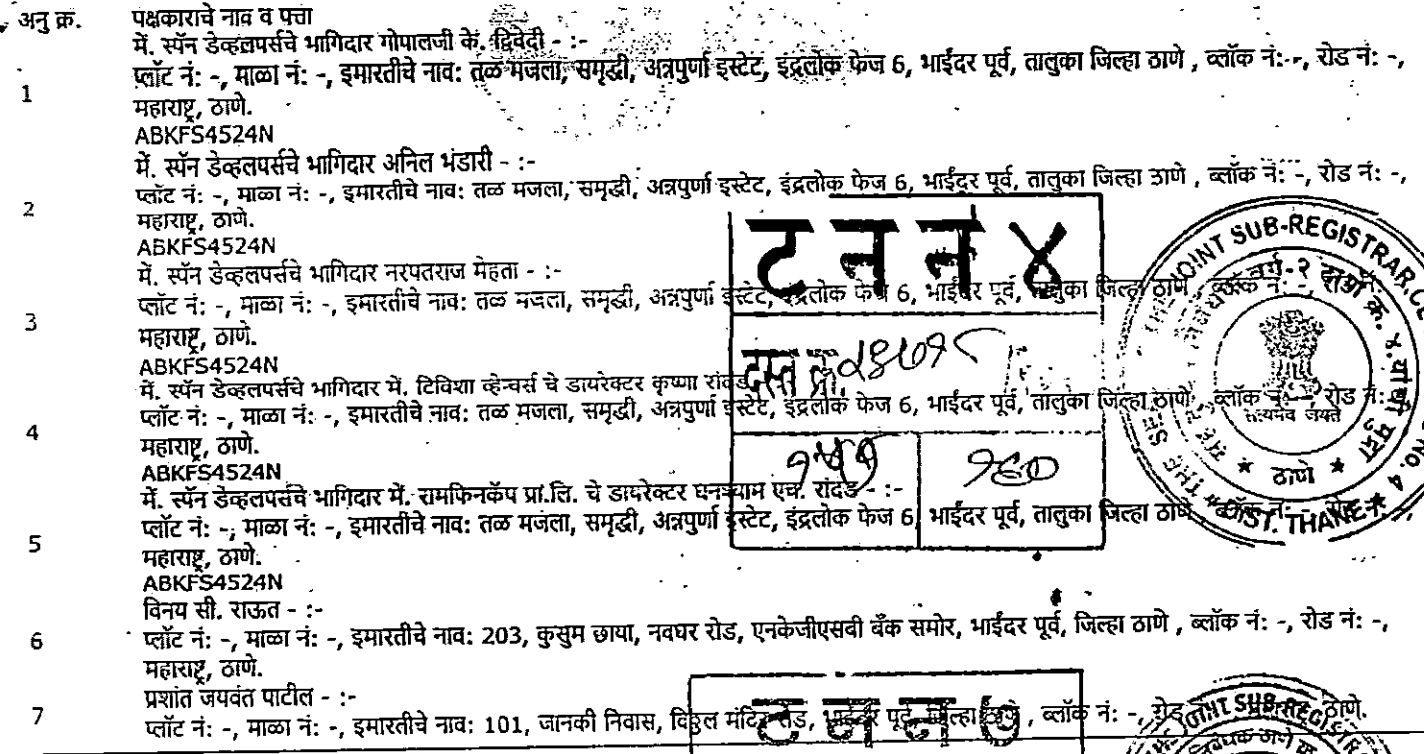 अनु क्र. पक्षकाराचे नाव व पत्ता
में. स्पॅन डेव्हलपर्सचे भागिदार गोपालजी के. द्विवेदी - :-
1 प्लॉट नं: -, माळा नं: -, इमारतीचे नाव: तळ मजला, समृद्धी, अन्नपुर्णा इस्टेट, इंद्रलोक फेज 6, भाईंदर पूर्व, तालुका जिल्हा ठाणे , ब्लॉक नं: -, रोड नं: -,
महाराष्ट्र, ठाणे.
ABKFS4524N
में. स्पॅन डेव्हलपर्सचे भागिदार अनिल भंडारी - :-
2 प्लॉट नं: -, माळा नं: -, इमारतीचे नाव: तळ मजला, समृद्धी, अन्नपुर्णा इस्टेट, इंद्रलोक फेज 6, भाईंदर पूर्व, तालुका जिल्हा ठाणे , ब्लॉक नं: -, रोड नं: -,
महाराष्ट्र, ठाणे.
ABKFS4524N
में. स्पॅन डेव्हलपर्सचे भागिदार नरपतराज मेहता - :-
3 प्लॉट नं: -, माळा नं: -, इमारतीचे नाव: तळ मजला, समृद्धी, अन्नपुर्णा इस्टेट, इंद्रलोक फेज 6, भाईंदर पूर्व, तालुका जिल्हा ठाणे , ब्लॉक नं: -,
महाराष्ट्र, ठाणे.
ABKFS4524N
में. स्पॅन डेव्हलपर्सचे भागिदार में. टिविशा व्हेन्चर्स चे डायरेक्टर कृष्णा रांदड
4 प्लॉट नं: -, माळा नं: -, इमारतीचे नाव: तळ मजला, समृद्धी, अन्नपुर्णा इस्टेट, इंद्रलोक फेज 6, भाईंदर पूर्व, तालुका जिल्हा ठाणे , ब्लॉक नं: -, रोड नं: -,
महाराष्ट्र, ठाणे.
ABKFS4524N
में. स्पॅन डेव्हलपर्सचे भागिदार में. रामफिनकॅप प्रा.लि. चे डायरेक्टर घनश्याम एच. रांदड - :-
5 प्लॉट नं: -, माळा नं: -, इमारतीचे नाव: तळ मजला, समृद्धी, अन्नपुर्णा इस्टेट, इंद्रलोक फेज 6, भाईंदर पूर्व, तालुका जिल्हा ठाणे , ब्लॉक नं: -, रोड
महाराष्ट्र, ठाणे.
ABKFS4524N
विनय सी. राऊत - :-
6 प्लॉट नं: -, माळा नं: -, इमारतीचे नाव: 203, कुसुम छाया, नवघर रोड, एनकेजीएसबी बँक समोर, भाईंदर पूर्व, जिल्हा ठाणे , ब्लॉक नं: -, रोड नं: -,
महाराष्ट्र, ठाणे.
प्रशांत जयवंत पाटील - :-
7 प्लॉट नं: -, माळा नं: -, इमारतीचे नाव: 101, जानकी निवास, विठ्ठल मंदिर रोड, भाईंदर पूर्व, जिल्हा ठाणे , ब्लॉक नं: -, रोड ठाणे.
ट न न ४
दस्त क्र. २४७१८
१५१ १६०
THE JOINT SUB-REGISTRAR
वर्ग-२
क्र. ४ यांची मुद्रा
सत्यमेव जयते
★ ठाणे ★
NO. 4
DIST. THANE
ट न न ७
JOINT SUB-REGIS